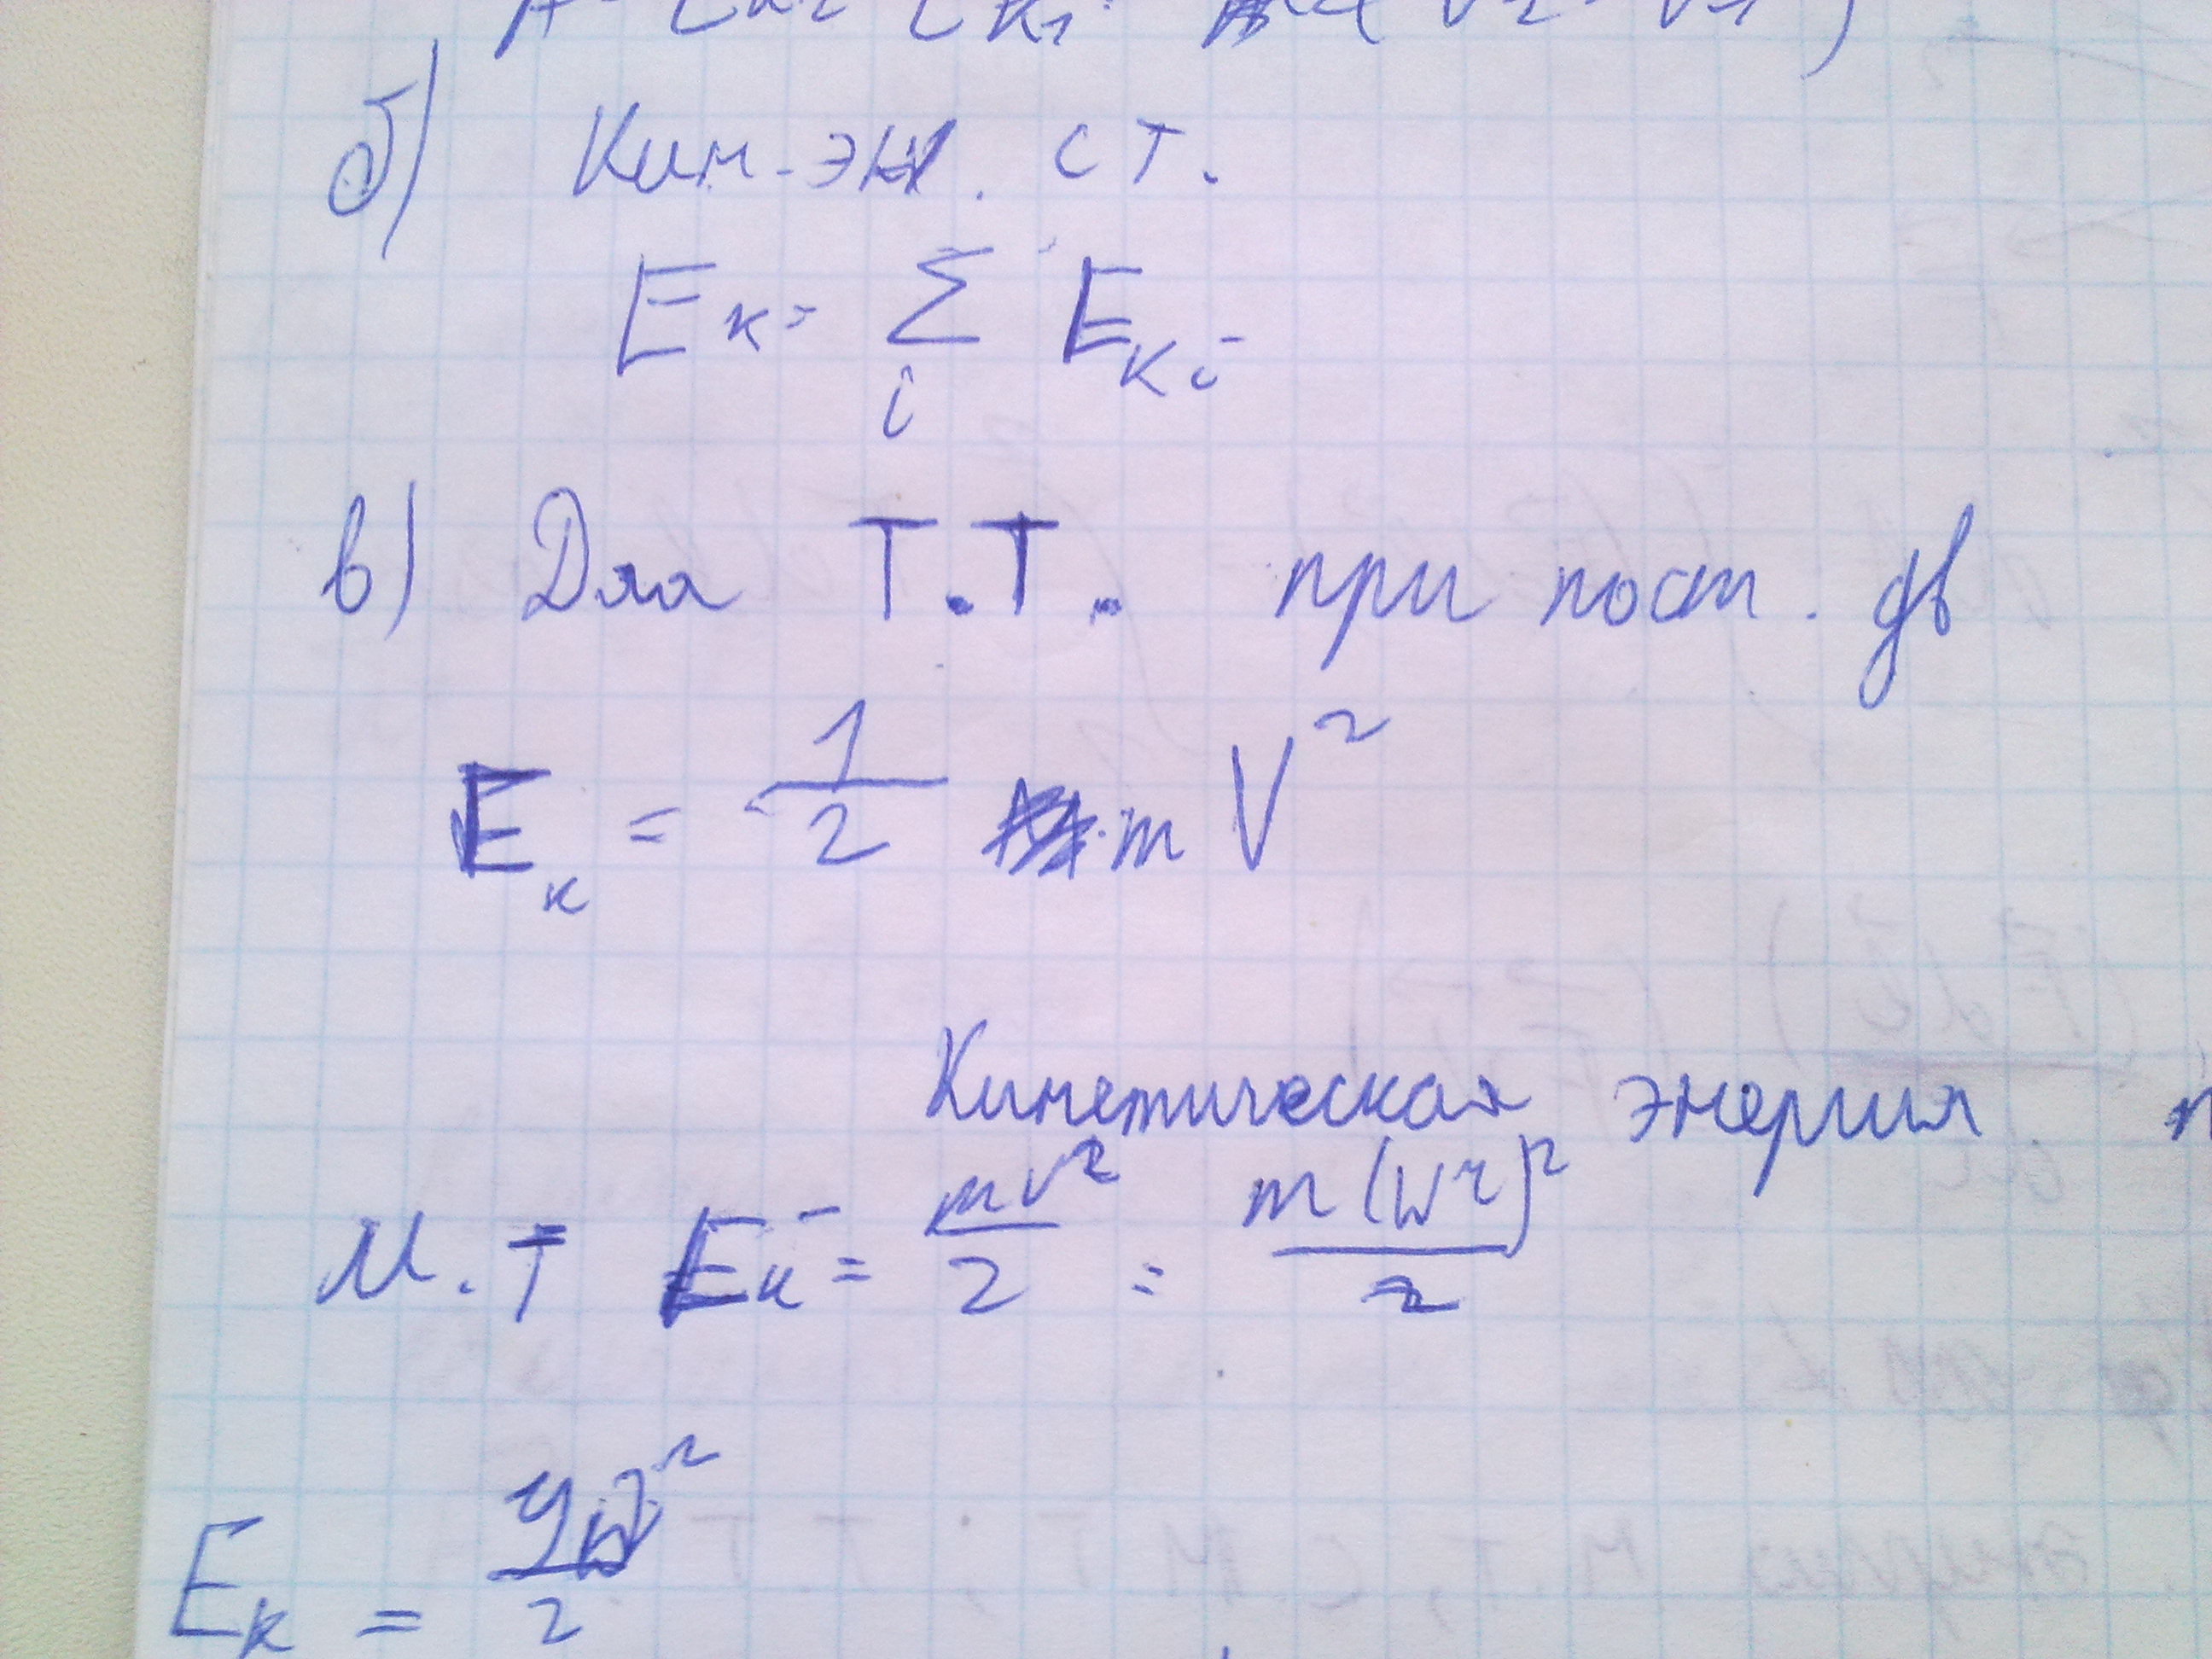 б) Кин. эн. ст.
Eк = Σ Eкi
i
в) Для Т.Т. при пост. дв
Eк = 1/2 m V²
Кинетическая энергия
М.Т Eк = mv²/2 = m(wr)²/2
Eк = Jw²/2